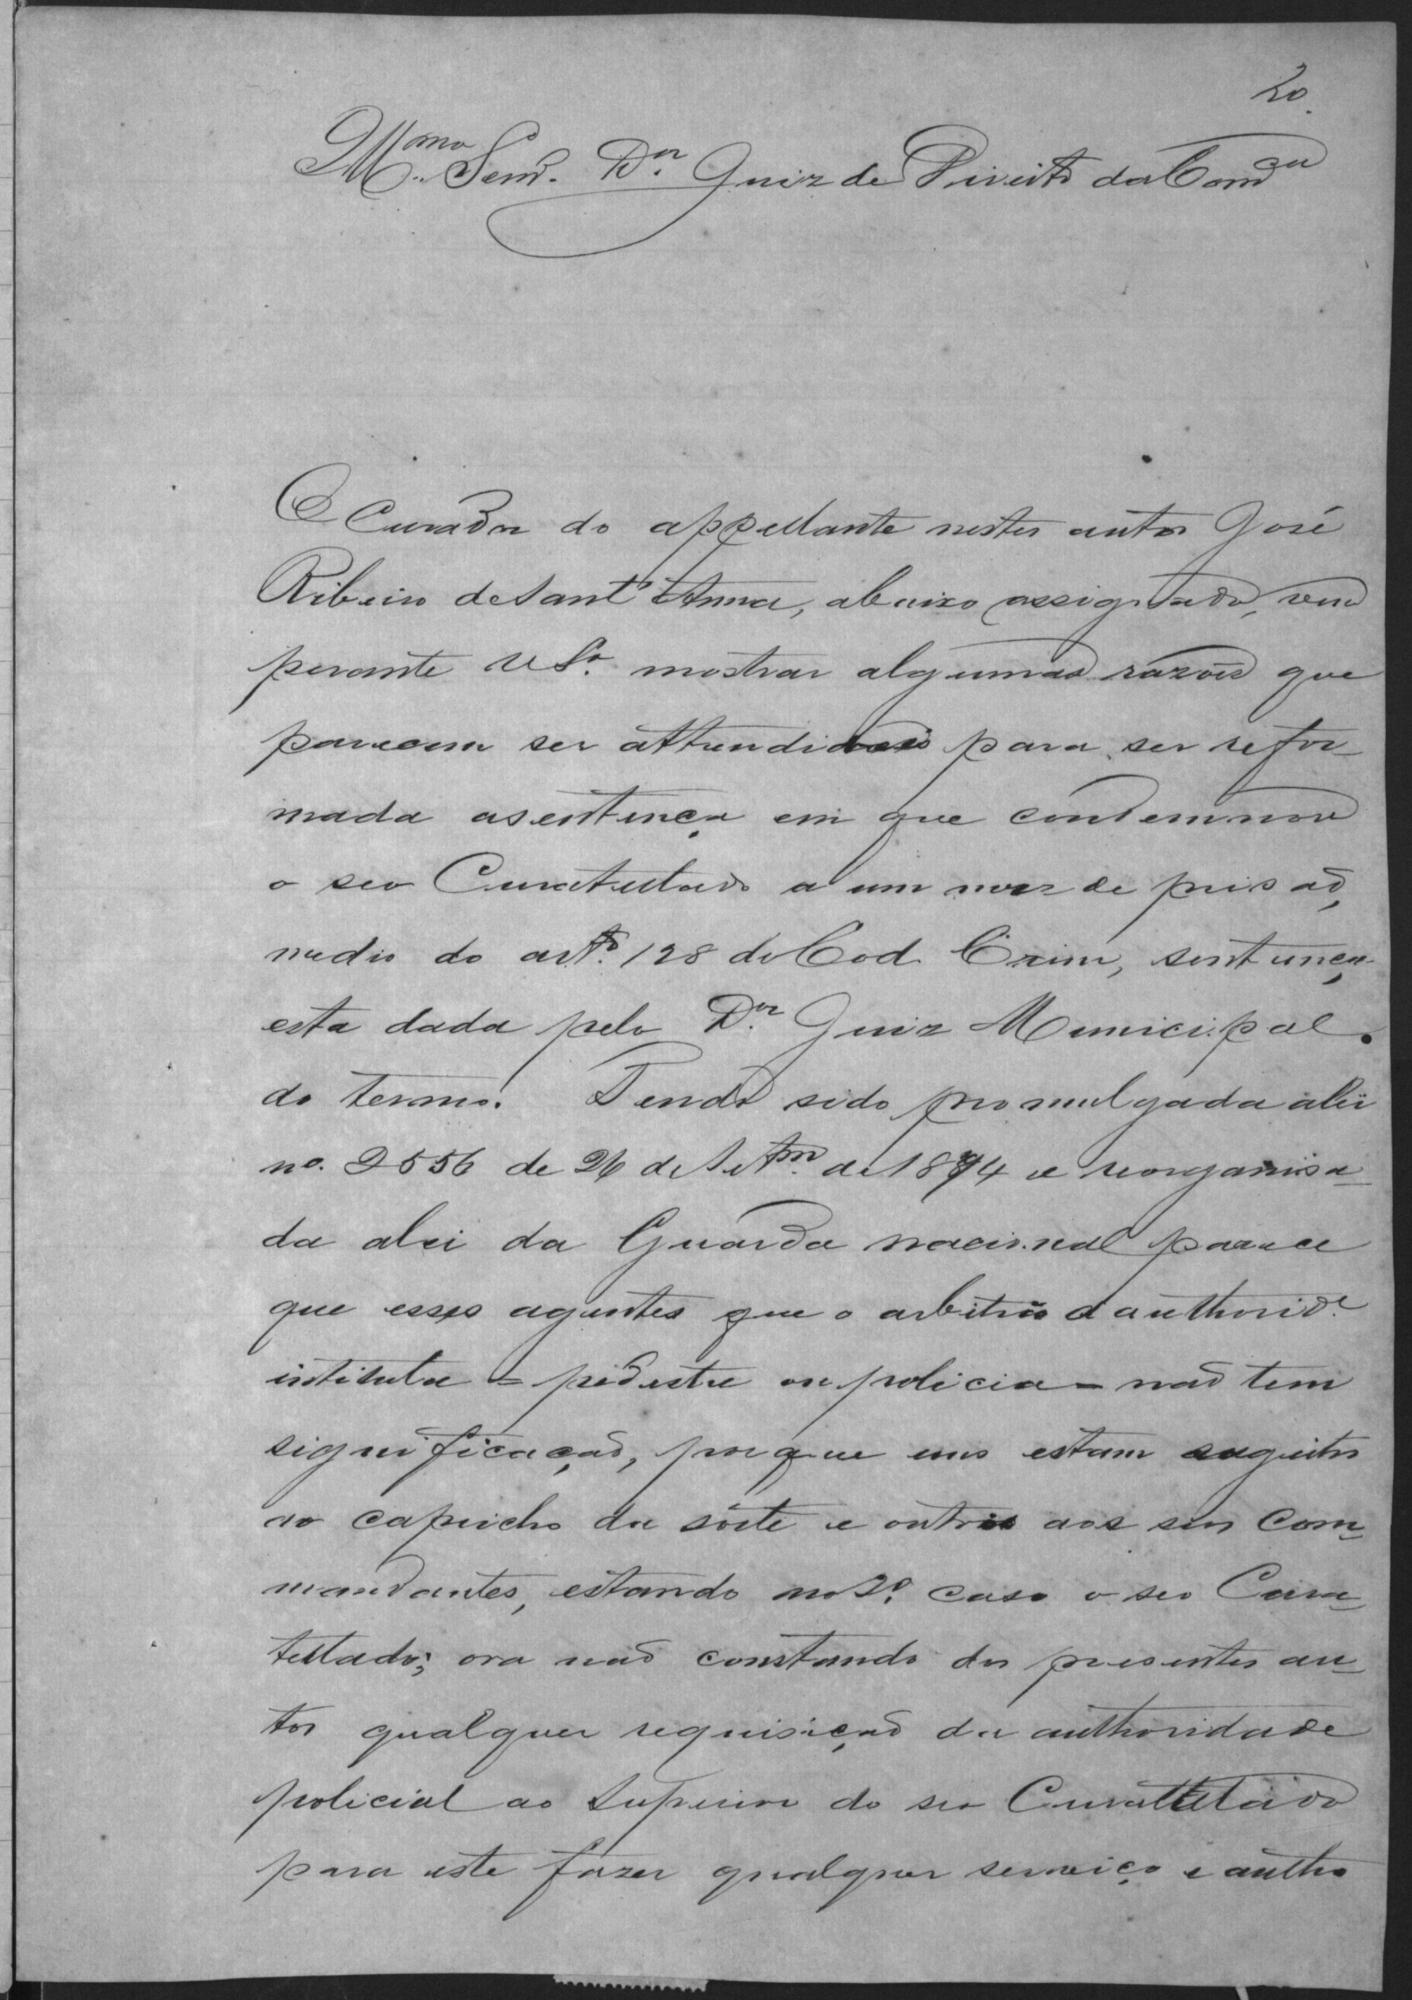 20.
M.mo Senr. Dor Juiz de Direito da Comca
O Curador do appellante nestes autos José
Ribeiro de Sant'Anna, abaixo assignado, vem
perante V. Sa. mostrar algumas razões que
parecem ser attendiveis para ser refor-
mada a sentença em que condemnou
o seo Curatellado a um mez de prisaõ,
medio do arto. 128 do Cod. Crim, sentença
esta dada pelo Dor Juiz Municipal
do termo. Tendo sido promulgada a lei
no. 2556 de 26 de Setmo. de 1874 e reorganisa-
da a lei da Guarda nacional parece
que esses agentes que o arbitrio d'authoride.
intitula = pedestre ou policia = naõ tem
significaçaõ, porque uns estam sugeitos
ao capricho da sórte e outros aos seus Com-
mandantes, estando no 2o. caso o seo Cura-
tellado; ora naõ constando dos presentes au-
tos qualquer requisiçaõ da authoridade
policial ao Superior do seo Curattelado
para este fazer qualquer serviço e autho